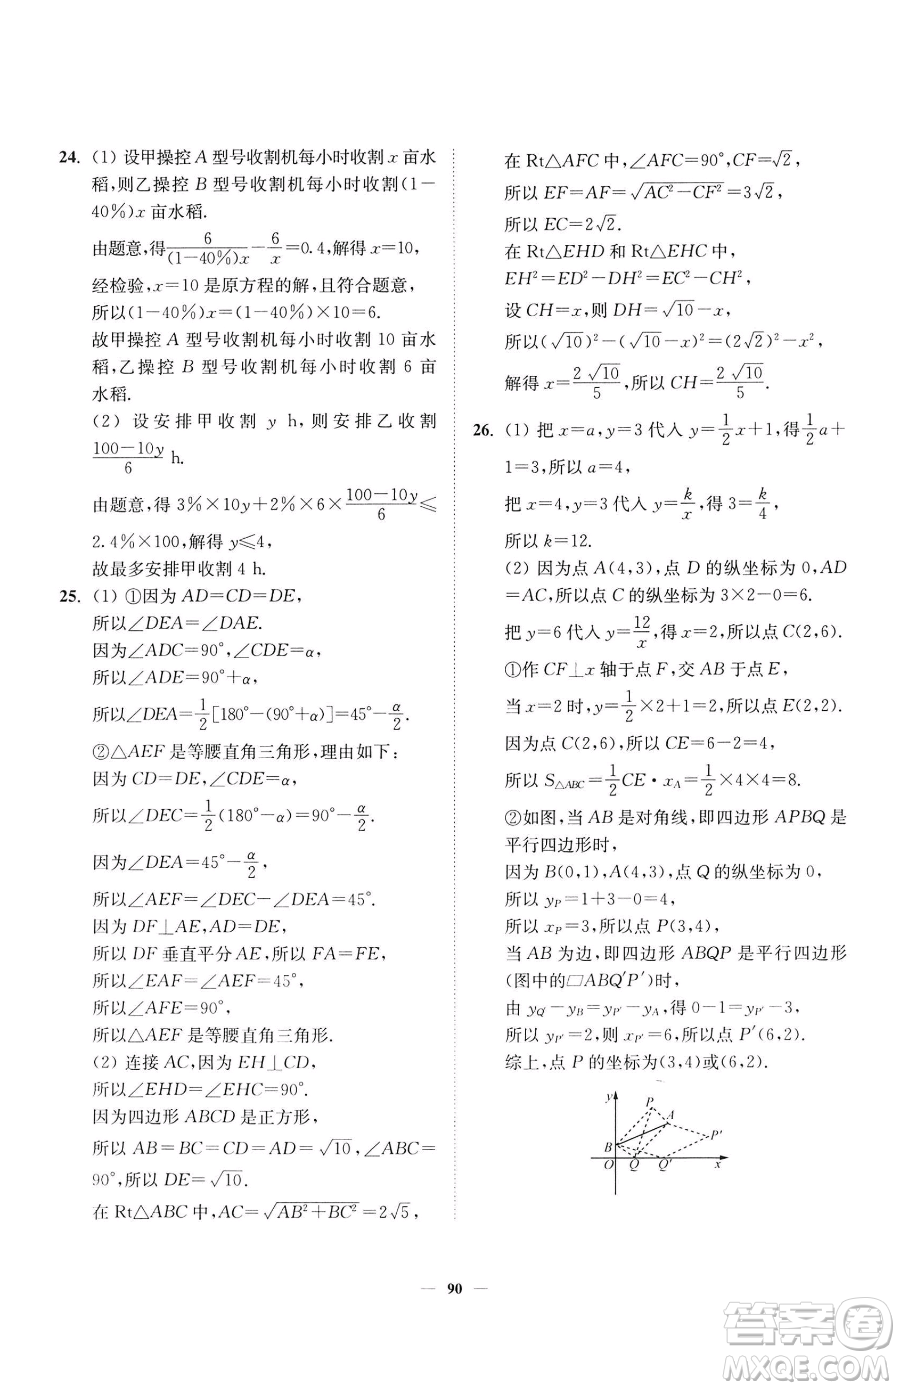 24. (1) 设甲操控 A 型号收割机每小时收割 x 亩水
稻,则乙操控 B 型号收割机每小时收割(1-
40%)x 亩水稻.
由题意,得6/((1-40%)x)-6/x=0.4,解得 x=10,
经检验,x=10 是原方程的解,且符合题意,
所以(1-40%)x=(1-40%)×10=6.
故甲操控 A 型号收割机每小时收割 10 亩水
稻,乙操控 B 型号收割机每小时收割 6 亩
水稻.
(2) 设安排甲收割 y h,则安排乙收割
(100-10y)/6 h.
由题意,得 3%×10y+2%×6×(100-10y)/6≤
2.4%×100,解得 y≤4,
故最多安排甲收割 4 h.
25. (1) ①因为 AD=CD=DE,
所以∠DEA=∠DAE.
因为∠ADC=90°,∠CDE=α,
所以∠ADE=90°+α,
所以∠DEA=1/2[180°-(90°+α)]=45°-α/2.
②△AEF 是等腰直角三角形,理由如下:
因为 CD=DE,∠CDE=α,
所以∠DEC=1/2(180°-α)=90°-α/2.
因为∠DEA=45°-α/2,
所以∠AEF=∠DEC-∠DEA=45°.
因为 DF⊥AE,AD=DE,
所以 DF 垂直平分 AE,所以 FA=FE,
所以∠EAF=∠AEF=45°,
所以∠AFE=90°,
所以△AEF 是等腰直角三角形.
(2) 连接 AC,因为 EH⊥CD,
所以∠EHD=∠EHC=90°.
因为四边形 ABCD 是正方形,
所以 AB=BC=CD=AD=√10,∠ABC=
90°,所以 DE=√10.
在 Rt△ABC 中,AC=√(AB²+BC²)=2√5,
在 Rt△AFC 中,∠AFC=90°,CF=√2,
所以 EF=AF=√(AC²-CF²)=3√2,
所以 EC=2√2.
在 Rt△EHD 和 Rt△EHC 中,
EH²=ED²-DH²=EC²-CH²,
设 CH=x,则 DH=√10-x,
所以(√10)²-(√10-x)²=(2√2)²-x²,
解得 x=2√10/5,所以 CH=2√10/5.
26. (1) 把 x=a,y=3 代入 y=1/2x+1,得1/2a+
1=3,所以 a=4,
把 x=4,y=3 代入 y=k/x,得 3=k/4,
所以 k=12.
(2) 因为点 A(4,3),点 D 的纵坐标为 0,AD
=AC,所以点 C 的纵坐标为 3×2-0=6.
把 y=6 代入 y=12/x,得 x=2,所以点 C(2,6).
①作 CF⊥x 轴于点 F,交 AB 于点 E,
当 x=2 时,y=1/2×2+1=2,所以点 E(2,2).
因为点 C(2,6),所以 CE=6-2=4,
所以 S△ABC=1/2CE·xA=1/2×4×4=8.
②如图,当 AB 是对角线,即四边形 APBQ 是
平行四边形时,
因为 B(0,1),A(4,3),点 Q 的纵坐标为 0,
所以 yP=1+3-0=4,
所以 xP=3,所以点 P(3,4),
当 AB 为边,即四边形 ABQP 是平行四边形
(图中的▱ABQ′P′)时,
由 yQ′-yB=yP′-yA,得 0-1=yP′-3,
所以 yP′=2,则 xP′=6,所以点 P′(6,2).
综上,点 P 的坐标为(3,4)或(6,2).
y
P
A
P′
B
O
Q
Q′
x
— 90 —
答案圈
MXQE.COM